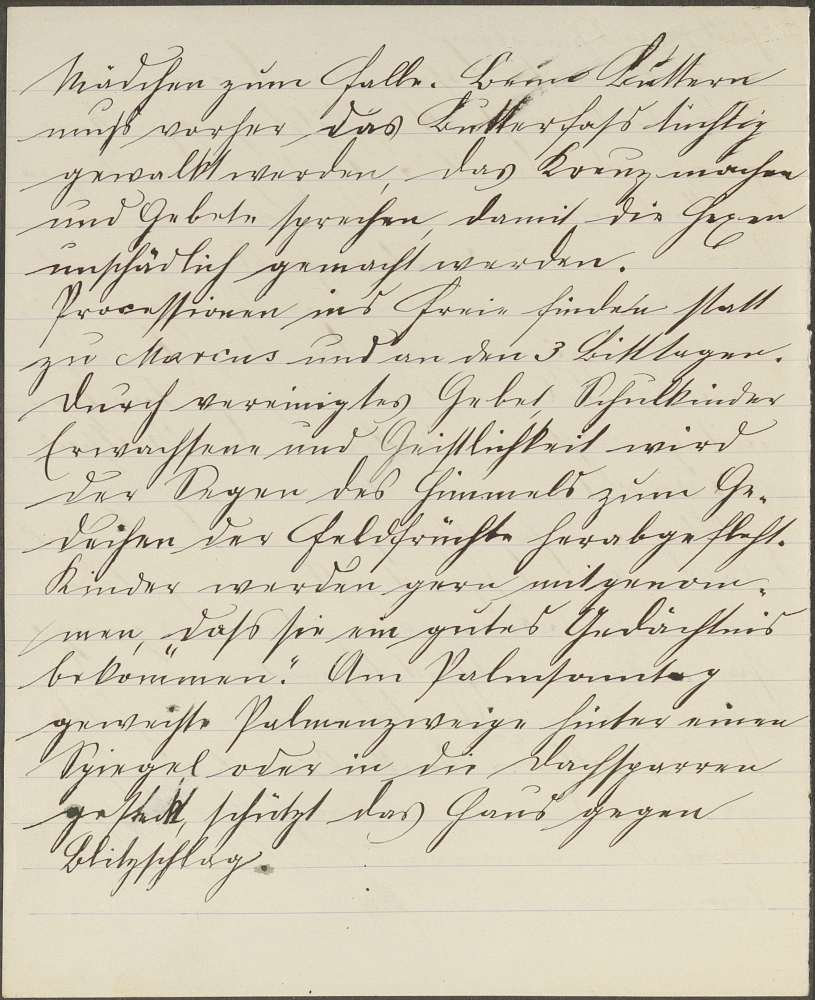 Mädchen zum Falle. Beim Buttern
muss vorher das Butterfass tüchtig
gewalkt werden, das Kreuz machen
und Gebete sprechen, damit die Hexen
unschädlich gemacht werden.
Processionen ins Freie finden statt
zu Marcus und an den 3 Bittagen.
Durch vereinigtes Gebet, Schulkinder
Erwachsene und Geistlichkeit wird
der Segen des Himmels zum Ge-
deihen der Feldfrüchte herabgefleht.
Kinder werden gern mitgenom-
men, „dass sie ein gutes Gedächtnis
bekommen." Am Palmsonntag
geweihte Palmenzweige hinter einen
Spiegel oder in die Dachsparren
gesteckt, schützt das Haus gegen
Blitzschlag.